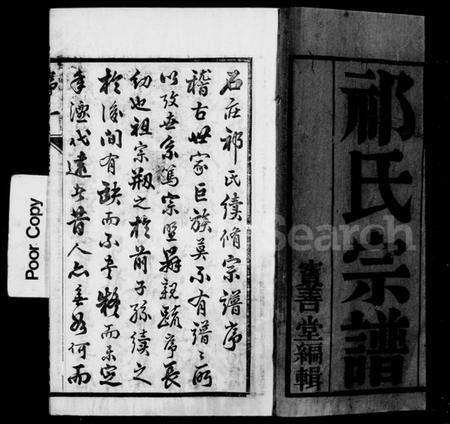 祁氏宗譜
寶善堂編輯
石庄祁氏續脩宗譜序
稽古世家巨族莫不有譜譜所
以攷世系篤宗盟辨親疏序長
幼也祖宗剏之於前子孫續之
於後間有缺而不書疑而未定
年湮代遠者昔人亦無如何而
Poor Copy
Search